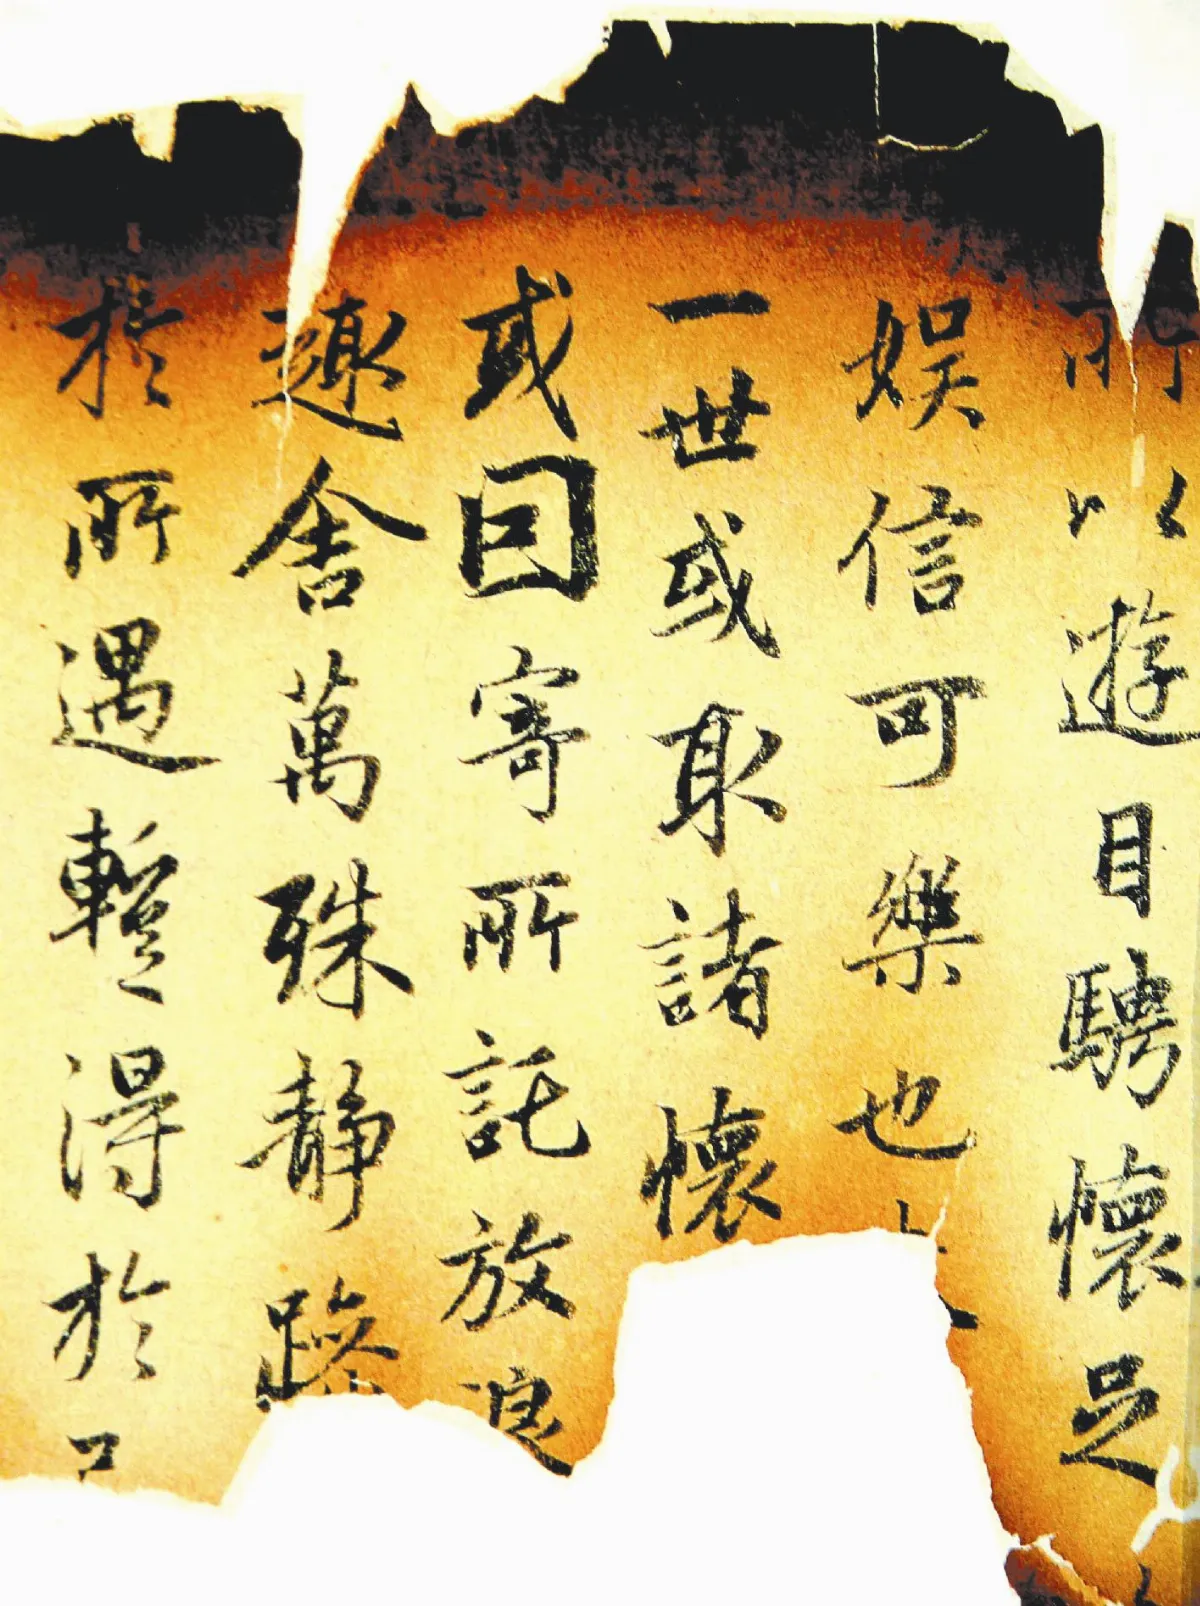 所以遊目騁懷足
娱信可樂也
一世或取諸懷
或因寄所託放浪
趣舍萬殊静躁
於所遇暫得於